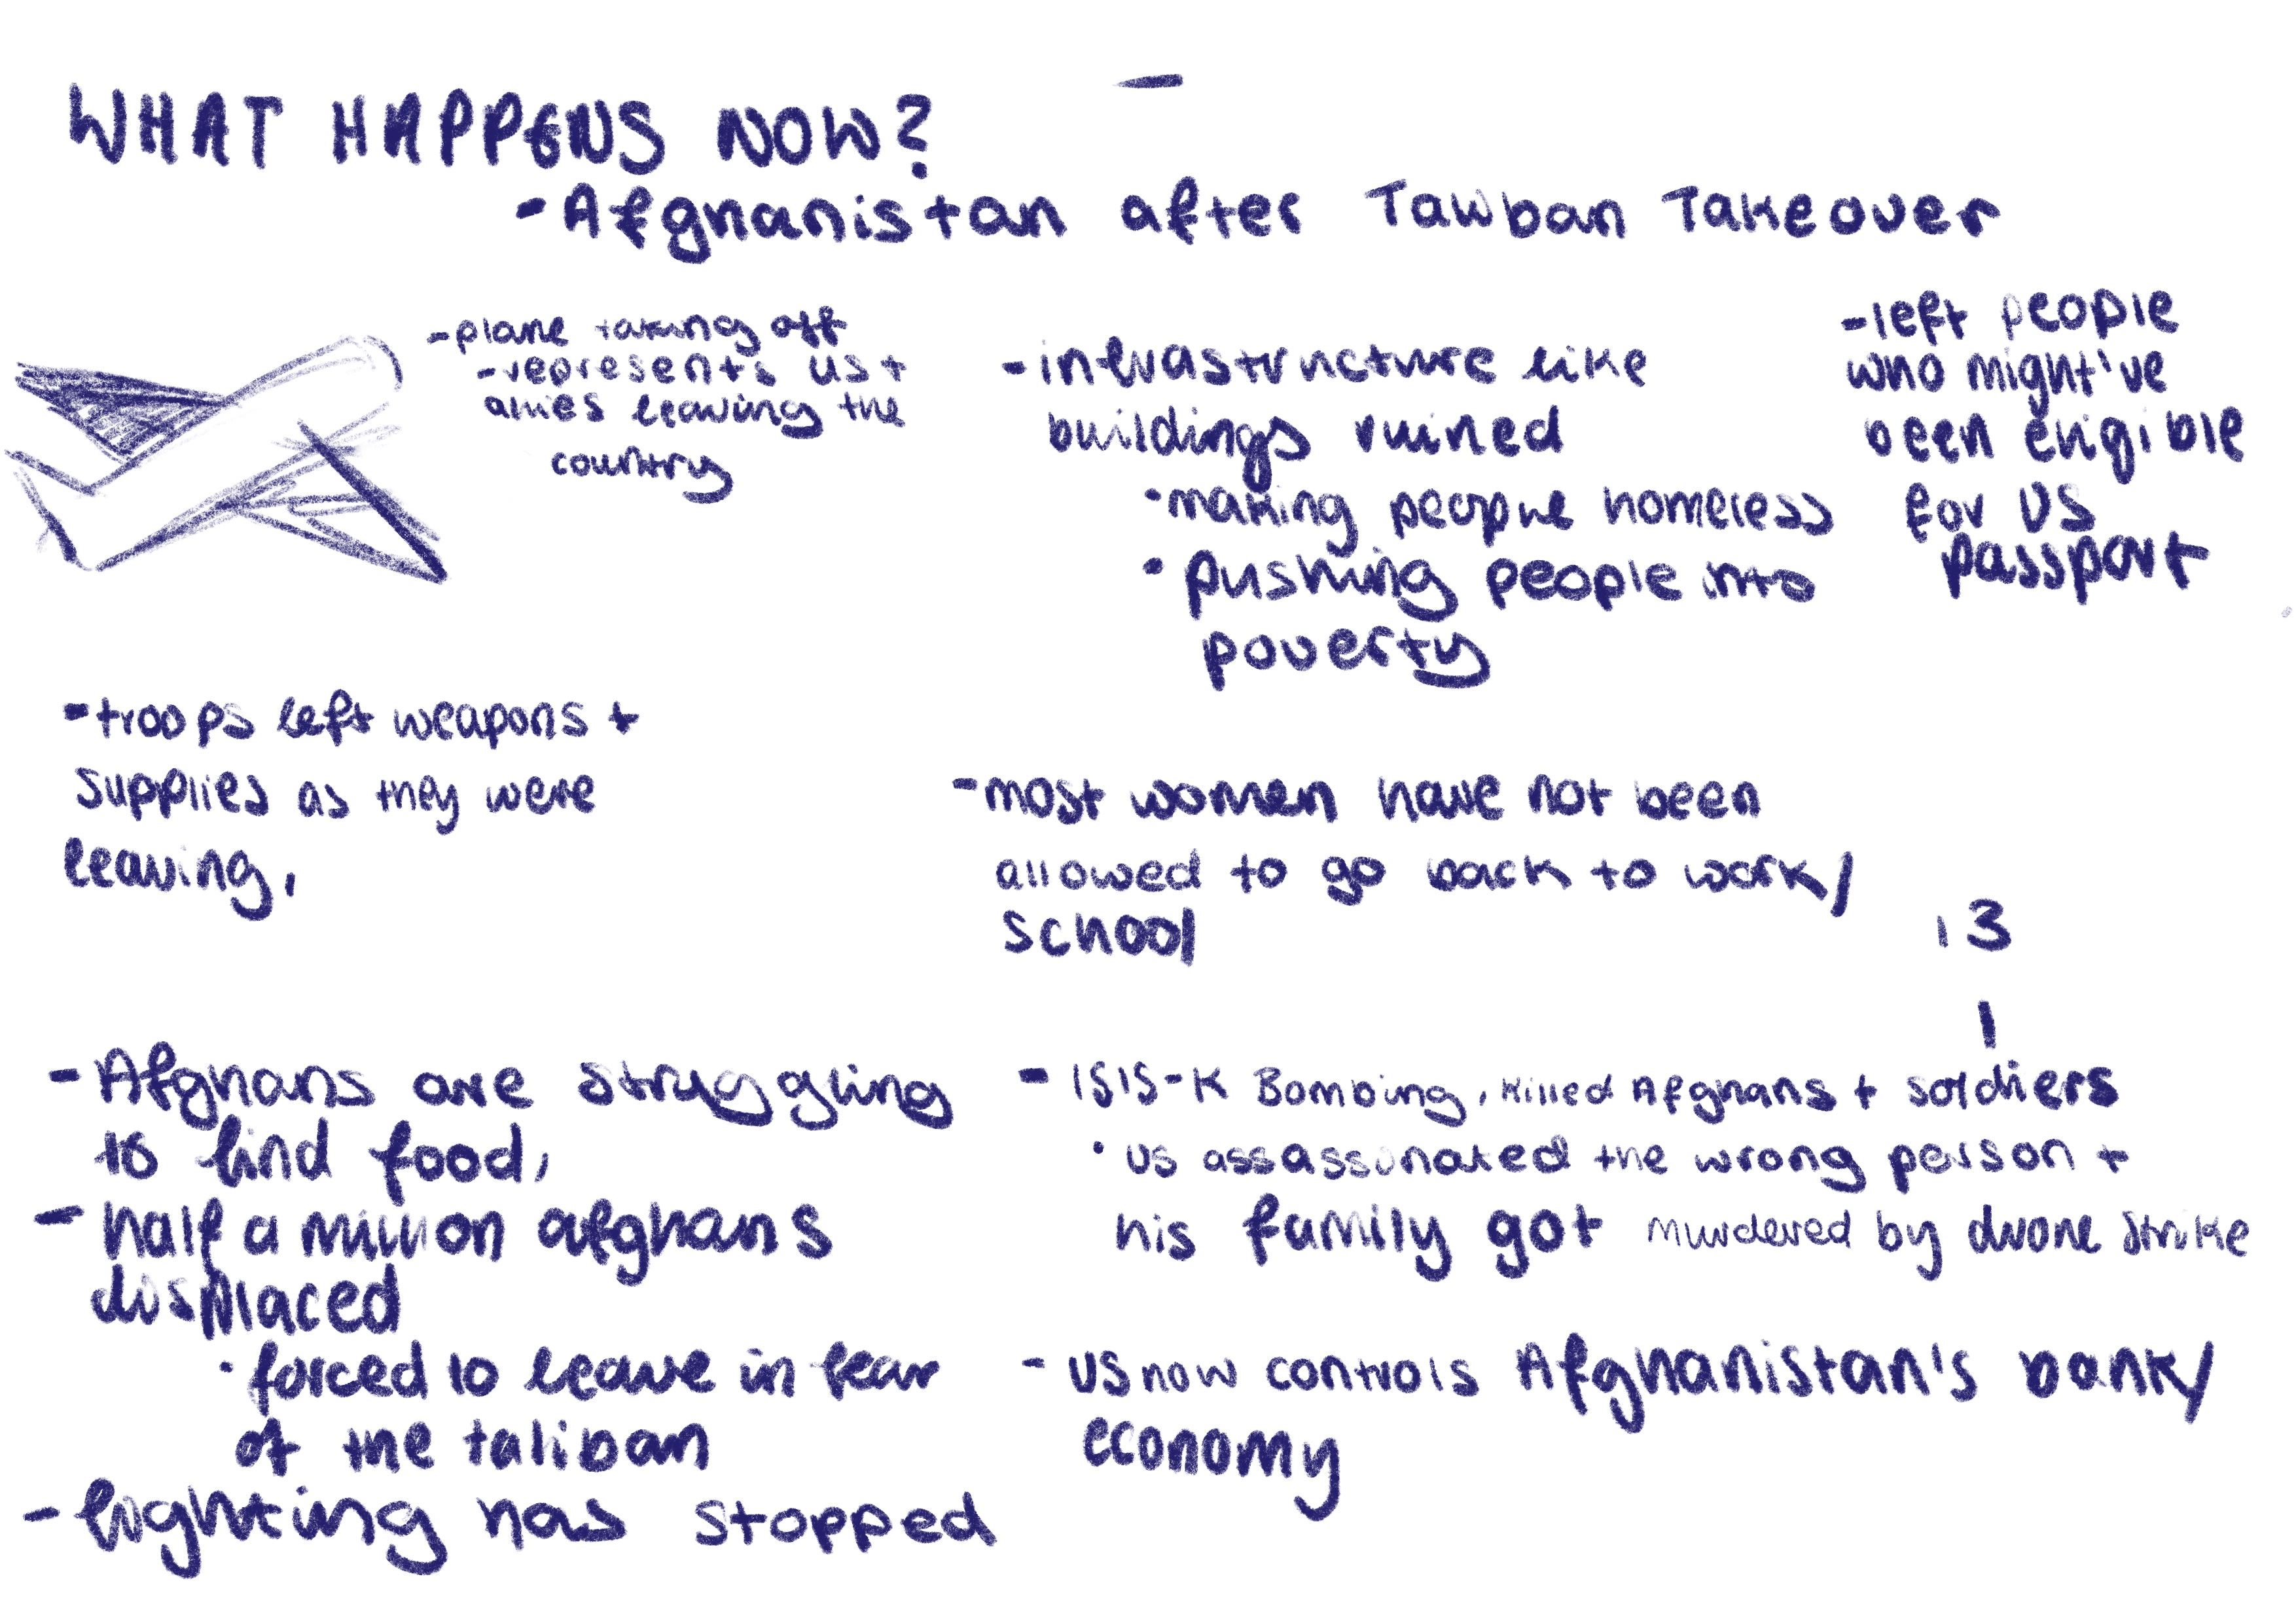 WHAT HAPPENS NOW?
- Afghanistan after Taliban Takeover
- plane taking off
- represents US +
allies leaving the
country
- infrastructure like
buildings ruined
• making people homeless
• pushing people into
poverty
- left people
who might've
been eligible
for US
passport
- troops left weapons +
supplies as they were
leaving,
- most women have not been
allowed to go back to work/
school
13
- Afghans are struggling
to find food,
- half a million afghans
displaced
• forced to leave in fear
of the taliban
- fighting has stopped
- ISIS-K Bombing, killed Afghans + soldiers
• US assassinated the wrong person +
his family got murdered by drone strike
- US now controls Afghanistan's bank/
economy